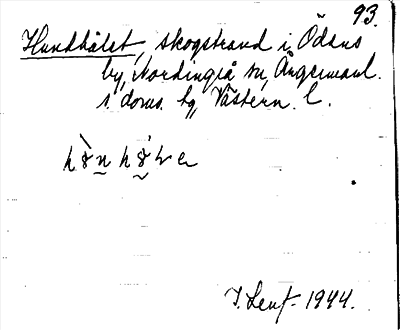 93.
Hundhålet, skogstrand i Ödsns
by, Nordingrå sn, Ångermanl.
s. doms. hg, Västern. l.
1944.